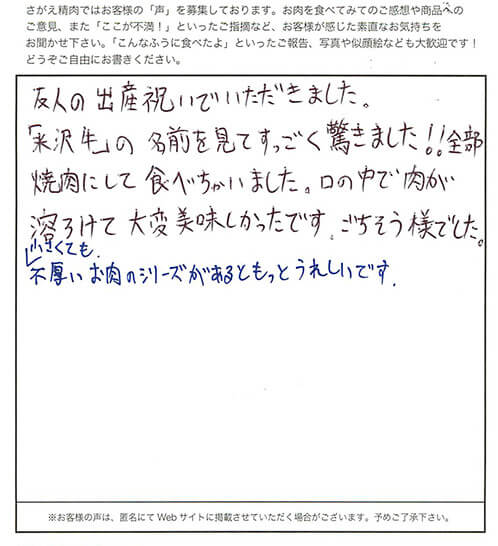 さがえ精肉ではお客様の「声」を募集しております。お肉を食べてみてのご感想や商品への
ご意見、また「ここが不満！」といったご指摘など、お客様が感じた素直なお気持ちを
お聞かせ下さい。「こんなふうに食べたよ」といったご報告、写真や似顔絵なども大歓迎です！
どうぞご自由にお書きください。
友人の出産祝いでいただきました。
「米沢牛」の名前を見てすっごく驚きました!!全部
焼肉にして食べちゃいました。口の中で肉が
溶ろけて大変美味しかったです。ごちそう様でした。
小さくても、
厚いお肉のシリーズがあるともっとうれしいです。
※お客様の声は、匿名にてWebサイトに掲載させていただく場合がございます。予めご了承下さい。